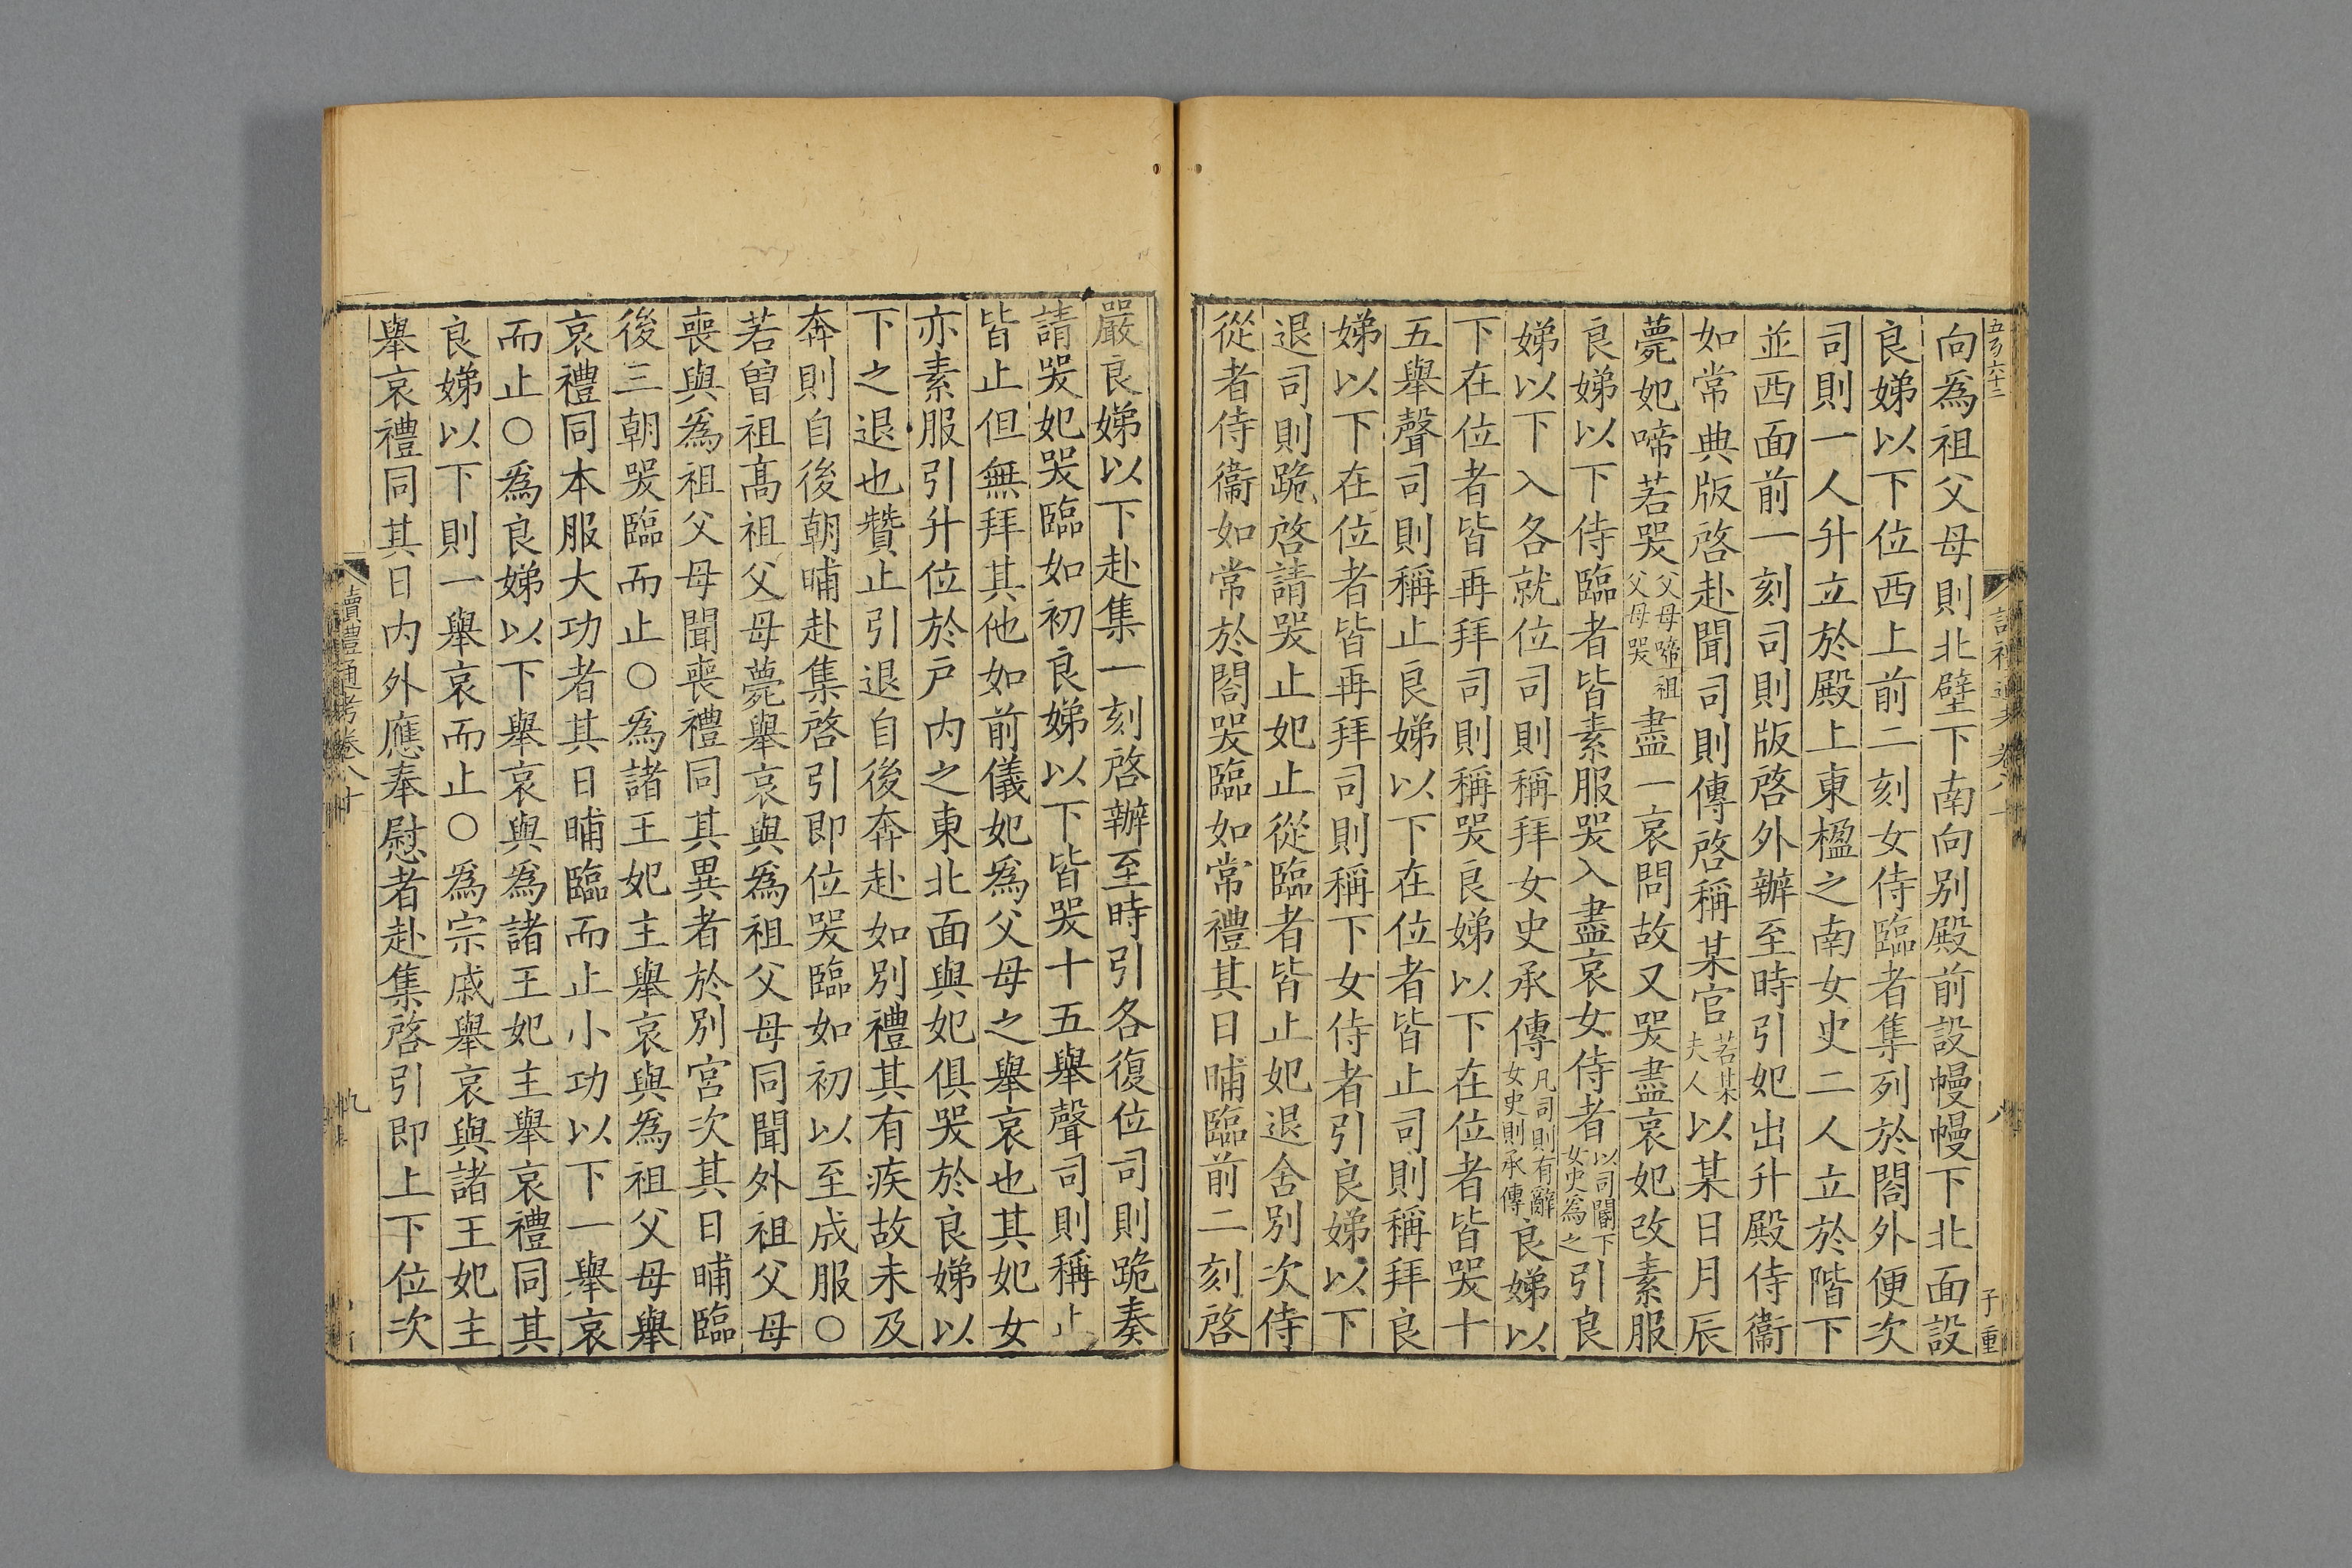 五百六十二
讀禮通考卷八十
八
子重
向爲祖父母則北壁下南向別殿前設幔幔下北面設
良娣以下位西上前二刻女侍臨者集列於閤外便次
司則一人升立於殿上東楹之南女史二人立於階下
並西面前一刻司則版啓外辦至時引妃出升殿侍衞
如常典版啓赴聞司則傳啓稱某官若某夫人以某日月辰
薨妃啼若哭父母啼祖父母哭盡一哀問故又哭盡哀妃改素服
良娣以下侍臨者皆素服哭入盡哀女侍者以司閽下女史爲之引良
娣以下入各就位司則稱拜女史承傳凡司則有辭女史則承傳良娣以
下在位者皆再拜司則稱哭良娣以下在位者皆哭十
五舉聲司則稱止良娣以下在位者皆止司則稱拜良
娣以下在位者皆再拜司則稱下女侍者引良娣以下
退司則跪啓請哭止妃止從臨者皆止妃退舍別次侍
從者侍衞如常於閤哭臨如常禮其日晡臨前二刻啓
嚴良娣以下赴集一刻啓辦至時引各復位司則跪奏
請哭妃哭臨如初良娣以下皆哭十五舉聲司則稱止
皆止但無拜其他如前儀妃爲父母之舉哀也其妃女
亦素服引升位於戶內之東北面與妃俱哭於良娣以
下之退也贊止引退自後奔赴如別禮其有疾故未及
奔則自後朝晡赴集啓引即位哭臨如初以至成服○
若曾祖高祖父母薨舉哀與爲祖父母同聞外祖父母
喪與爲祖父母聞喪禮同其異者於別宮次其日晡臨
後三朝哭臨而止○爲諸王妃主舉哀與爲祖父母舉
哀禮同本服大功者其日晡臨而止小功以下一舉哀
而止○爲良娣以下舉哀與爲諸王妃主舉哀禮同其
良娣以下則一舉哀而止○爲宗戚舉哀與諸王妃主
舉哀禮同其日內外應奉慰者赴集啓引即上下位次
讀禮通考卷八十
九